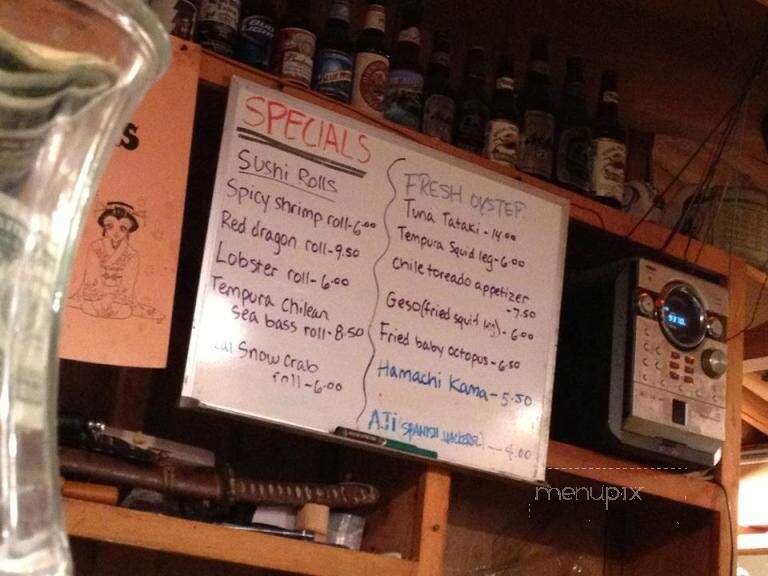 SPECIALS
Sushi Rolls
Spicy shrimp roll-6.00
Red dragon roll-9.50
Lobster roll-6.00
Tempura Chilean
sea bass roll-8.50
Snow crab
roll-6.00
FRESH OYSTER
Tuna Tataki-14.00
Tempura Squid leg-6.00
chile toreado appetizer
-7.50
Geso(fried squid leg)-6.00
Fried baby octopus-6.50
Hamachi Kama-5.50
AJI (SPANISH MACKEREL)
-4.00
menupix